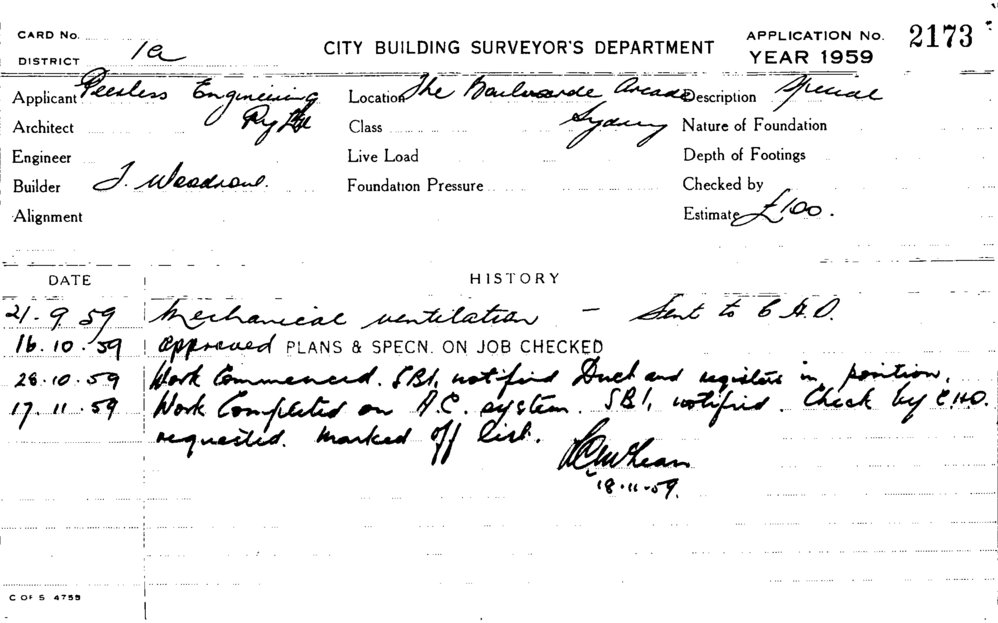 CARD No.
DISTRICT 1a
CITY BUILDING SURVEYOR'S DEPARTMENT
APPLICATION No. 2173
YEAR 1959
Applicant Peerless Engineering Pty Ltd
Location The Boulevarde Arcade Sydney
Description Special
Architect
Class
Nature of Foundation
Engineer
Live Load
Depth of Footings
Builder J.
Foundation Pressure
Checked by
Alignment
Estimate £100.
DATE HISTORY
21.9.59 Mechanical ventilation – Sent to C.H.O.
16.10.59 approved PLANS & SPECN. ON JOB CHECKED
28.10.59 Work Commenced. SBI, notified Duct and registers in position.
17.11.59 Work Completed on A.C. system. SBI, notified. Check by C.H.O.
requested. Marked off list.
18.11.59.
C OF S 4759